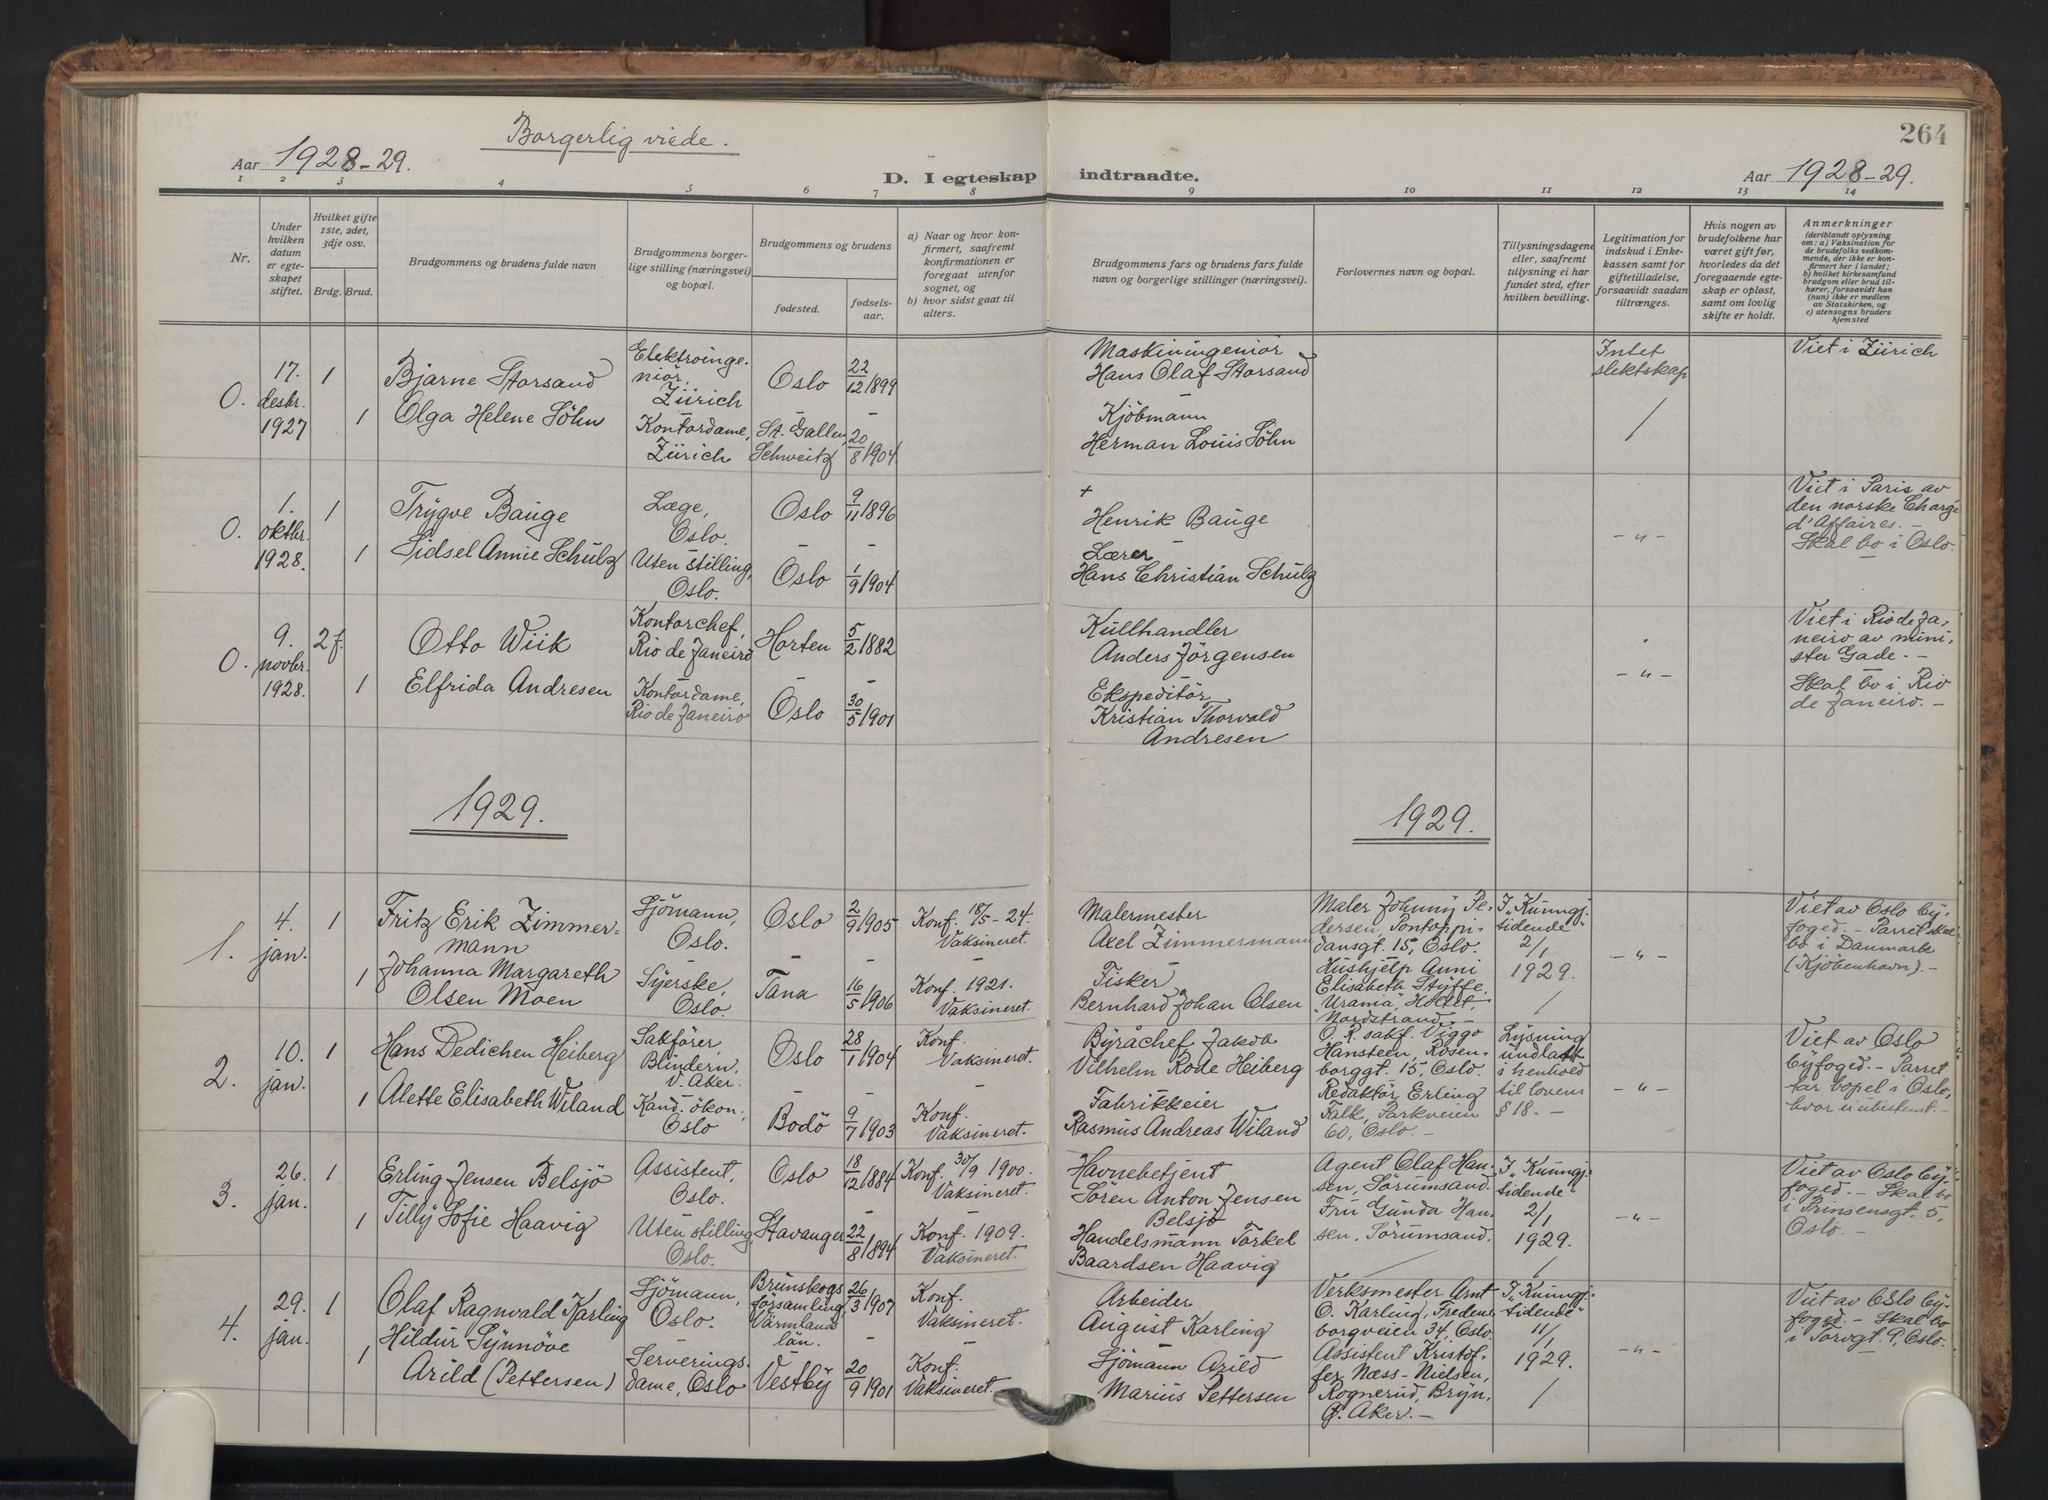 264
Borgerlig viede.
Aar 1928-29.
D. I egteskap indtraadte.
Aar 1928-29.
1 2 3 4 5 6 7 8 9 10 11 12 13 14
Nr.
Under hvilken datum er egteskapet stiftet.
Hvilket gifte 1ste, 2det, 3dje osv.
Brdg. Brud.
Brudgommens og brudens fulde navn
Brudgommens borgerlige stilling (næringsvei) og bopæl.
Brudgommens og brudens
fødested.
fødselsaar.
a) Naar og hvor konfirmert, saafremt konfirmationen er foregaat utenfor sognet, og
b) hvor sidst gaat til alters.
Brudgommens fars og brudens fars fulde navn og borgerlige stillinger (næringsvei).
Forlovernes navn og bopæl.
Tillysningsdagene eller, saafremt tillysning ei har fundet sted, efter hvilken bevilling.
Legitimation for indskud i Enkekassen samt for giftetilladelse, forsaavidt saadan tiltrænges.
Hvis nogen av brudefolkene har været gift før, hvorledes da det foregaaende egteskap er opløst, samt om lovlig skifte er holdt.
Anmerkninger
(deriblandt oplysning om: a) Vaksination for de brudefolks vedkommende, der ikke er konfirmert her i landet; b) hvilket kirkesamfund brudgom eller brud tilhører, forsaavidt han (hun) ikke er medlem av Statskirken, og c) utensogns bruders hjemsted
0. 17. desbr. 1927 1 Bjarne Storsand Elektroingeniör, Zürich Oslo 22/12 1899 Maskiningeniör Hans Olaf Storsand Intet slektskap Viet i Zürich
1 Olga Helene Söhn Kontordame, Zürich St. Gallen, Schweitz 20/8 1904 Kjöbmann Herman Louis Söhn
0. 1. oktbr. 1928. 1 Trygve Bauge Læge, Oslo. Oslo 9/11 1896 + Henrik Bauge -"- Viet i Paris av den norske Charge d'Affaires. - Skal bo i Oslo.
1 Lidsel Annie Schulz Uten stilling, Oslo. Oslo 1/9 1904 Lærer Hans Christian Schulz
0. 9. novbr. 1928. 2 f. Otto Wiik Kontorchef, Rio de Janeiro Horten 5/2 1882 Kullhandler Anders Jörgensen -"- Viet i Rio de Janeiro av minister Gade. - Skal bo i Rio de Janeiro. -
1 Elfrida Andresen Kontordame, Rio de Janeiro Oslo 30/5 1901 Ekspeditör Kristian Thorvald Andresen
1929. 1929.
1. 4. jan. 1 Fritz Erik Zimmermann Sjömann, Oslo. Oslo 2/9 1905 Konf. 18/5-24. Vaksineret. Malermester Axel Zimmermann Maler Johnny Pedersen, Pontoppidansgt. 15, Oslo. I "Kunngj. tidende" 2/1 1929. -"- Viet av Oslo byfoged. - Parret skal bo i Danmark (Kjöbenhavn). -
1 Johanna Margareth Olsen Moen Syerske, Oslo. Tana 16/5 1906 Konf. 1921. Vaksineret. Fisker Bernhard Johan Olsen Hushjelp Anni Elisabeth Styffe, "Urania", Hotet, Nordstrand. -
2. 10. jan. 1 Hans Dedichen Heiberg Sakförer, Blindern, V. Aker. Oslo 28/1 1904 Konf. Vaksineret. Byråchef Jakob Vilhelm Rode Heiberg O. R. sakf. Viggo Hansteen, Rosenborggt. 15, Oslo. Lysning undlatt i henhold til lovens § 18. - -"- Viet av Oslo byfoged. - Parret tar bopel i Oslo, hvor ei ubestemt. -
1 Alette Elisabeth Wiland Kand. ökon., Oslo Bodö 9/7 1903 Konf. Vaksineret. Fabrikkeier Rasmus Andreas Wiland Redaktör Erling Falk, Parkveien 60, Oslo. -
3. 26. jan. 1 Erling Jensen Belsjö Assistent, Oslo. Oslo 18/12 1884 Konf. 30/9 1900. Vaksineret. Havnebetjent Sören Anton Jensen Belsjö Agent Olaf Hansen, Sörumsand. I "Kunngj. tidende" 2/1 1929. -"- Viet av Oslo byfoged. - Skal bo i Prinsensgt. 5, Oslo. -
1 Tilly Sofie Haavig Uten stilling, Oslo. Stavanger 22/8 1894 Konf. 1909. Vaksineret. Handelsmann Torkel Baardsen Haavig Fru Gunda Hansen, Sörumsand.
4. 29. jan. 1 Olaf Ragnvald Karling Sjömann, Oslo. Brunskogs församling, Värmlands län. 26/3 1907 Konf. Vaksineret. Arbeider August Karling Verksmester Arnt O. Karling, Fredensborgveien 34, Oslo. I "Kunngj. tidende" 11/1 1929. -"- Viet av Oslo byfoged. - Skal bo i Torvgt. 9, Oslo.
1 Hildur Synnöve Arild (Pettersen) Serveringsdame, Oslo Vestby 20/9 1901 Konf. Vaksineret. Sjömann Arild Marius Pettersen Assistent Kristoffer Næss-Nielsen, Rognerud, Bryn, Ö. Aker. -